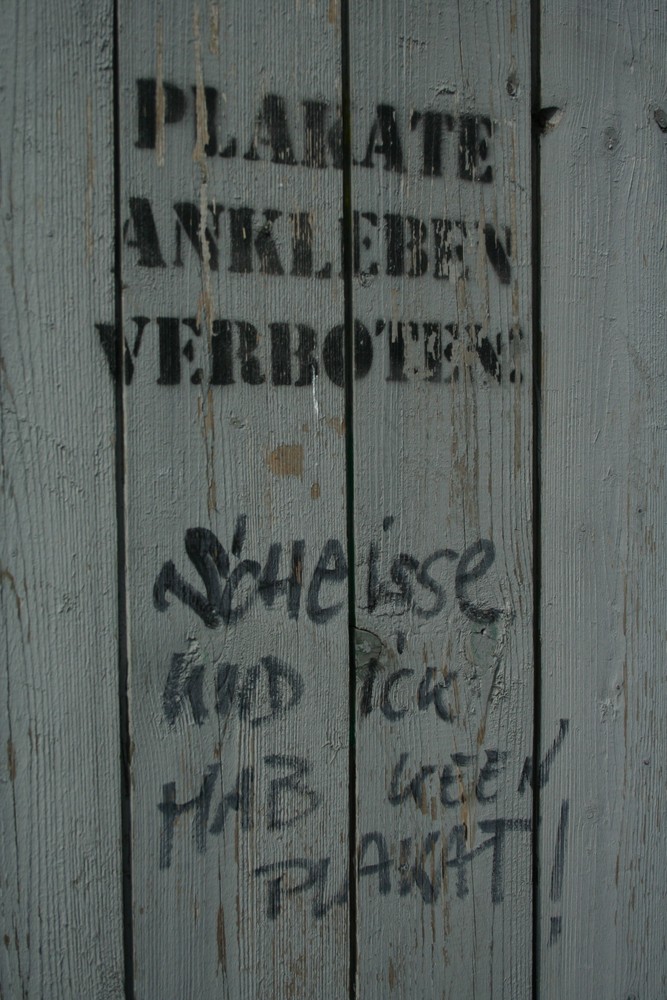 PLAKATE
ANKLEBEN
VERBOTEN!
SCHEISSE
UND ICK
HAB KEEN
PLAKAT!